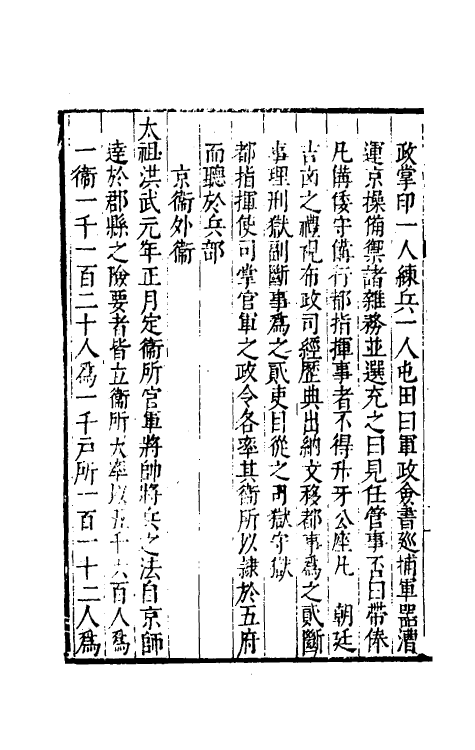 政掌印一人練兵一人屯田曰軍政僉書廵捕軍器漕
運京操備禦諸雜務並選充之曰見任管事否曰帶俸
凡備倭守備行都指揮事者不得升牙公座凡 朝廷
吉凶之禮視布政司經歷典出納文移都事爲之貳斷
事理刑獄副斷事爲之貳吏目從之司獄守獄
都指揮使司掌官軍之政令各率其衞所以隷於五府
而聽於兵部
京衞外衞
太祖洪武元年正月定衞所官軍將帥將兵之法自京師
達於郡縣之險要者皆立衞所大率以五千六百人爲
一衞一千一百二十人爲一千戸所一百一十二人爲